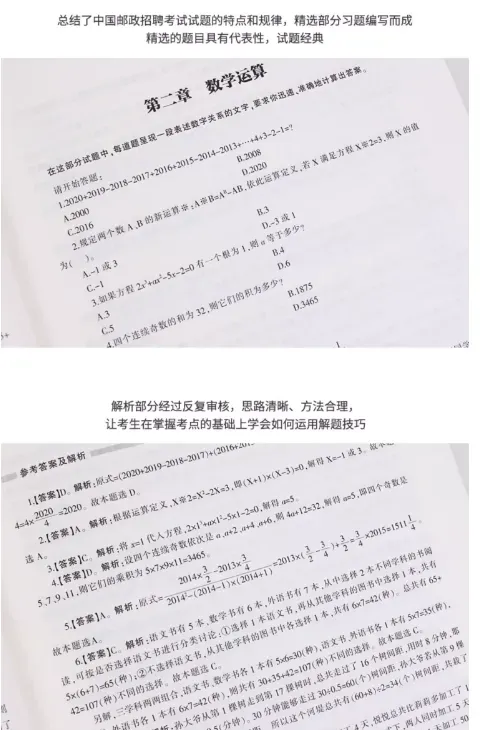 总结了中国邮政招聘考试试题的特点和规律，精选部分习题编写而成
精选的题目具有代表性，试题经典
第二章 数学运算
在这部分试题中，每道题呈现一段表述数字关系的文字，要求你迅速、准确地计算出答案。
请开始答题：
1.2020+2019-2018-2017+2016+2015-2014-2013+…+4+3-2-1=?
A.2000
B.2008
C.2016
D.2020
2.规定两个数A,B的新运算※:A※B=Aᴮ-AB,依此运算定义,若X满足方程X※2=3,则X的值
为( )。
A.-1或3
B.3
C.-1
D.-3或1
3.如果方程2x³+ax²-5x-2=0有一个根为1,则a等于多少?
A.3
B.4
C.5
D.6
4.四个连续奇数的和为32,则它们的积为多少?
B.1875
D.3465
解析部分经过反复审核，思路清晰、方法合理，
让考生在掌握考点的基础上学会如何运用解题技巧
参考答案及解析
1.【答案】D。解析:原式=(2020+2019-2018-2017)+(2016+201
4=4×2020/4=2020。故本题选D。
2.【答案】A。解析:根据运算定义,X※2=X²-2X=3,即(X+1)(X-3)=0,解得X=-1或3。故本
选A。
3.【答案】C。解析:将x=1代入方程,2×1³+a×1²-5×1-2=0,解得a=5。
4.【答案】D。解析:设四个连续奇数依次是a,a+2,a+4,a+6,则4a+12=32,解得a=5,即四个奇数是
5、7、9、11,则它们的乘积为5×7×9×11=3465。
5.【答案】A。解析:原式=
故本题选A。
6.【答案】C。解析:语文书有5本,数学书有6本,外语书有7本,从中选择2本不同学科的书阅
读,可按是否选择语文书进行分类讨论:①选择1本语文书,再从其他学科的图书中选择1本,共有
5×(6+7)=65(种);②不选择语文书,从其他学科的图书中各选择1本,共有6×7=42(种)。总共有65+
42=107(种)不同的选择。故本题选C。
另解,三学科两两组合,语文书、数学书各1本有5×6=30(种),语文书、外语书各1本有5×7=35(种),
外语书各1本有6×7=42(种),则共有30+35+42=107(种)不同的选择。故本题选C。
解析:孙大爷从第1棵树走到第17棵树时,总共走过了16个树间距,用时8分钟,那
0.5(分钟)。30分钟能够走过30÷0.5=60(个)树间距,孙大爷若从第9棵
所以这个河堤总共有(60+8)÷2=34(个)树间距,共栽了